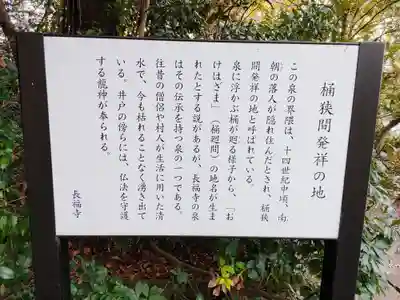 桶狭間発祥の地
この泉の界隈は、十四世紀中頃、南
朝の落人が隠れ住んだとされ、桶狭
間発祥の地と呼ばれている。
泉に浮かぶ桶が廻る様子から、「お
けはざま」(桶廻間)の地名が生ま
れたとする説があるが、長福寺の泉
はその伝承を持つ泉の一つである。
往昔の僧侶や村人が生活に用いた清
水で、今も枯れることなく湧き出て
いる。井戸の傍らには、仏法を守護
する龍神が奉られる。
長福寺